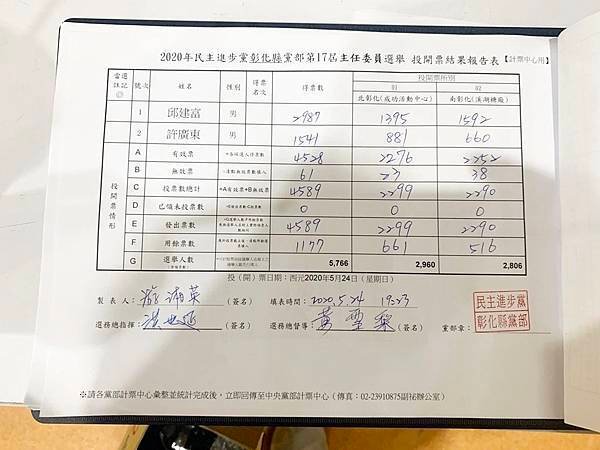 2020年民主進步黨彰化縣黨部第17屆主任委員選舉 投開票結果報告表【計票中心用】
當選註記 號次 姓名 性別 得票名次 得票數 投開票所別
01 02
北彰化(成功活動中心) 南彰化(溪湖糖廠)
1 邱建富 男 2987 1395 1592
2 許廣東 男 1541 881 660
投開票情形
A 有效票 =各候選人得票數 4528 2276 2252
B 無效票 61 23 38
C 投票數總計 =A有效票+B無效票 4589 2299 2290
D 已領未投票數 0 0 0
E 發出票數 4589 2299 2290
F 用餘票數 1177 661 516
G 選舉人數 5,766 2,960 2,806
投(開)票日期:西元2020年5月24日(星期日)
製表人: (簽名) 填表時間:2020.5.24 19:23
選務總指揮: (簽名) 選務總督導: (簽名) 黨部章:
民主進步黨
彰化縣黨部
※請各黨部計票中心彙整並統計完成後,立即回傳至中央黨部計票中心(傳真:02-23910875副祕辦公室)